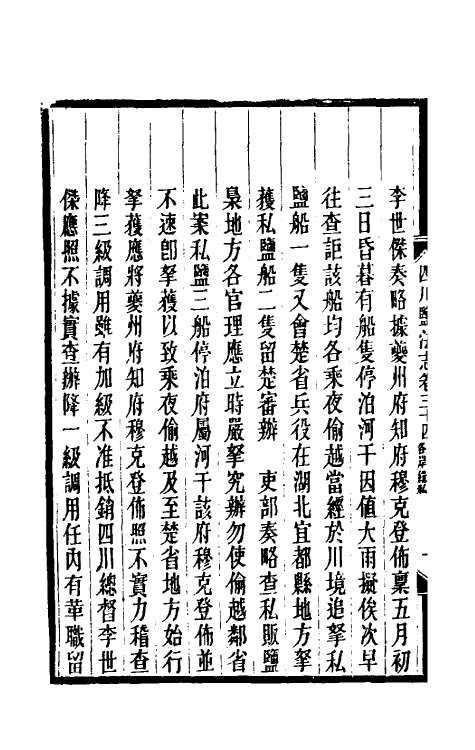 四川鹽法志卷三十四
李世傑奏略據夔州府知府穆克登佈稟五月初
三日昏暮有船隻停泊河干因值大雨擬俟次早
往查詎該船均各乘夜偷越當經於川境追拏私
鹽船一隻又會楚省兵役在湖北宜都縣地方拏
獲私鹽船二隻留楚審辦　吏部奏略查私販鹽
梟地方各官理應立時嚴拏究辦勿使偷越鄰省
此案私鹽三船停泊府屬河干該府穆克登佈並
不速卽拏獲以致乘夜偷越及至楚省地方始行
拏獲應將夔州府知府穆克登佈照不實力稽查
降三級調用雖有加級不准抵銷四川總督李世
傑應照不據實查辦降一級調用任內有革職留